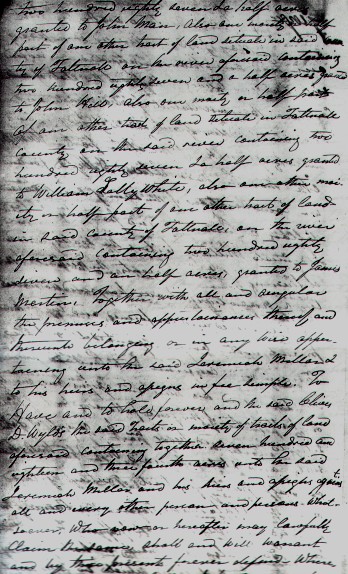 two hundred eighty seven & a half acres
granted to John Man, also one moity or half
part of one other tract of land situate in said
ty of Tattnale on the river aforesaid containing
two hundred eighty seven and a half acres granted
to John Hill, also one moity or half part
of one other tract of land situate in Tattnale
County on the said river containing two
hundred eighty seven & a half acres granted
to William Lilly White, also one other moi
ity or half part of one other tract of land
in said county of Tattnale, on the river
aforesaid containing two hundred eighty
seven and one half acres, granted to James
Martin, Together with all and singular
the premises and appurtenances thereof and
thereunto belonging or in any wise apper
taining unto the said Jeremiah Millard
to his heirs and assigns in fee simple. To
Have and to hold forever and the said Oliver
D. Wylds the said Tracts or moiety of tracts of land
aforesaid containing together seven hundred and
eighteen and three fourth acres unto the said
Jeremiah Millar and his heirs and assigns against
all and every other person and persons What
soever. Who now or hereafter may lawfully
Claim the same shall and will warrant
and by these presents forever defend Where